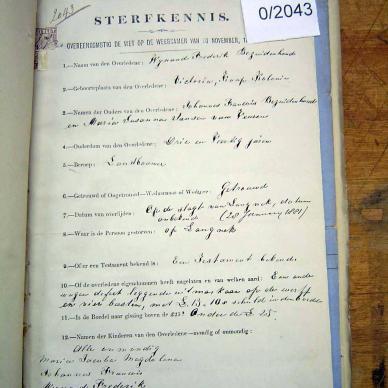 0/2043
2043
STERFKENNIS.
OVEREENKOMSTIG DE WET OP DE WEESKAMER VAN
NOVEMBER, 1
1.—Naam van den Overledene: Wynand Frederik Bezuidenhout
2.—Geboorteplaats van den Overledene: Victoria, Kaap Kolonie
3.—Namen der Ouders van den Overledene: Johannes Francois Bezuidenhout
en Maria Susanna Jansen van
4.—Ouderdom van den Overledene: Drie en Veertig jaren
5.—Beroep: Landbouwer
6.—Getrouwd of Ongetrouwd—Weduwnaar of Weduwe: Getrouwd
7.—Datum van overlijden: Op de slagt van Langnek, datum
onbekend (28 January 1881)
8.—Waar is de Persoon gestorven: op Langnek
9.—Of er een Testament bekend is: Een Testament bekend
10.—Of de overledene eigendommen heeft nagelaten en van welken aard: Een oude
wagen defect
en vier met £ 15-10 schuld in den boedel
11.—Is de Boedel naar gissing boven de £15? Onder de £ 25.
12.—Namen der Kinderen van den Overledene—mondig of onmondig:
Alle onmondig
Maria Jacoba Magdalena
Johannes Francois
Frederik